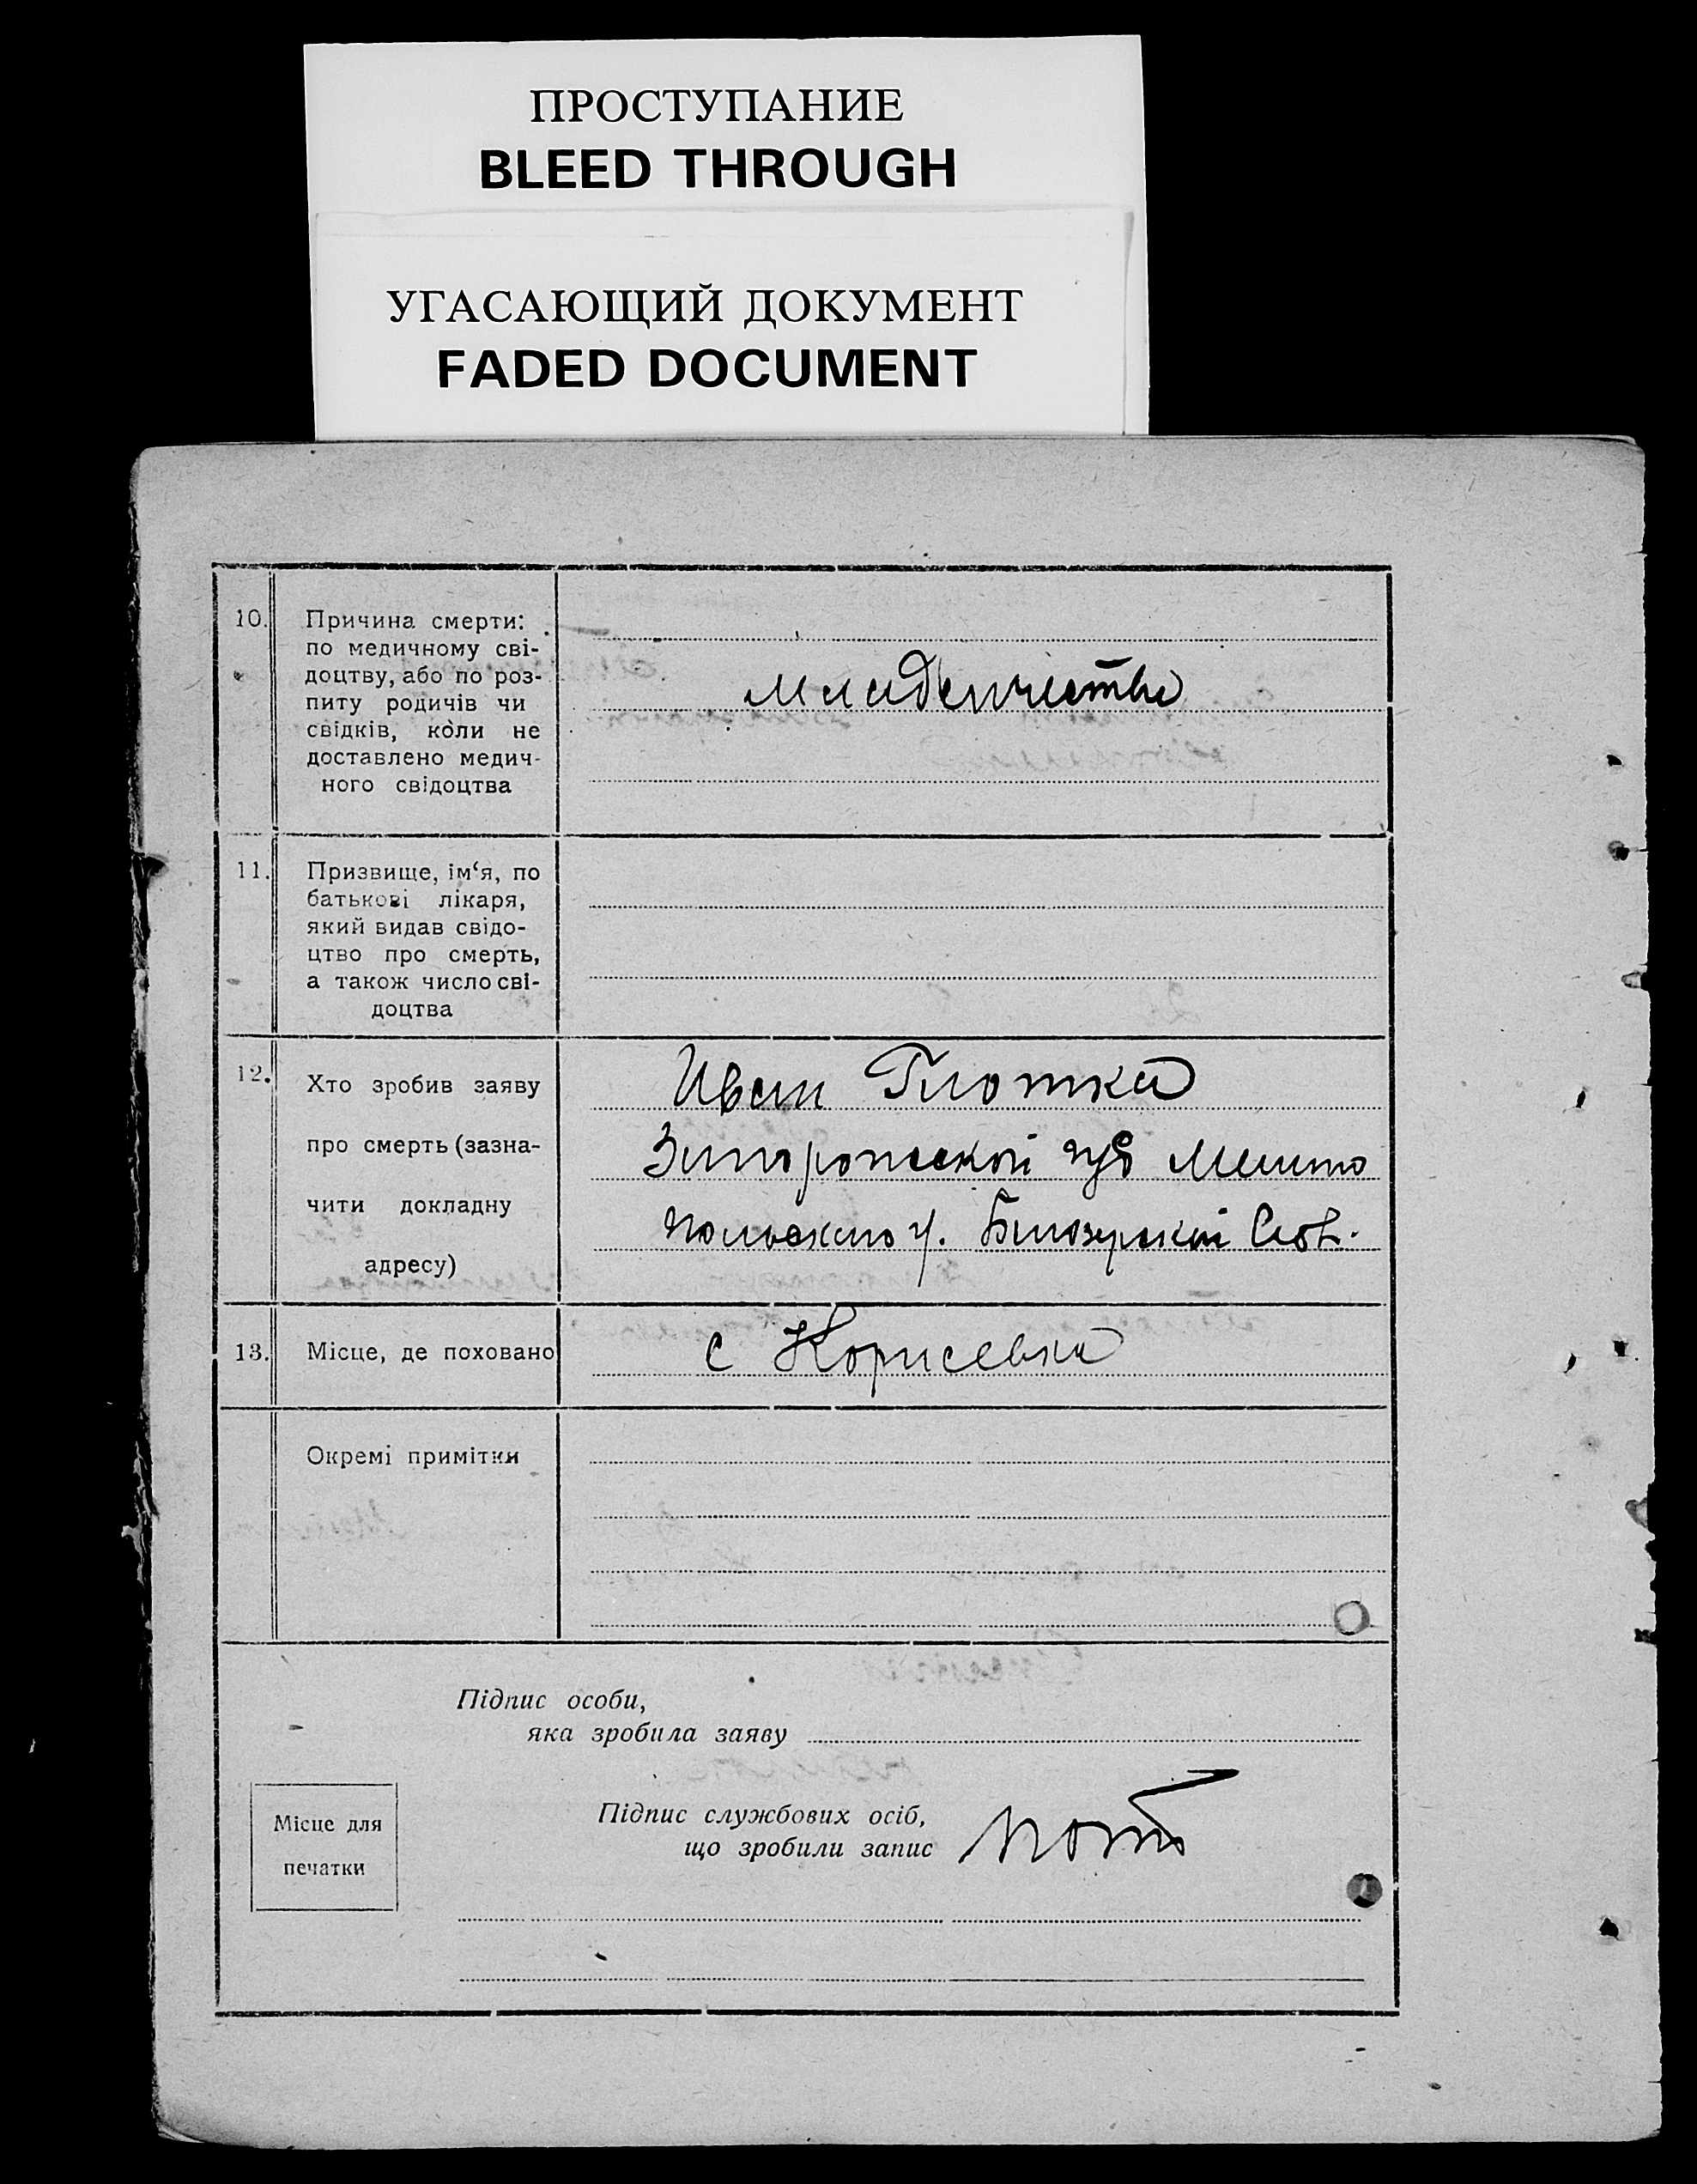 ПРОСТУПАНИЕ
BLEED THROUGH
УГАСАЮЩИЙ ДОКУМЕНТ
FADED DOCUMENT
10. Причина смерти:
по медичному сві-
доцтву, або по роз-
питу родичів чи
свідків, коли не
доставлено медич-
ного свідоцтва
младенчества
11. Призвище, ім‘я, по
батькові лікаря,
який видав свідо-
цтво про смерть,
а також число сві-
доцтва
12. Хто зробив заяву
про смерть (зазна-
чити докладну
адресу)
Иван
Запорожской губ Мелито
польского у.
13. Місце, де поховано
с
Окремі примітки
Підпис особи,
яка зробила заяву
Місце для
печатки
Підпис службових осіб,
що зробили запис